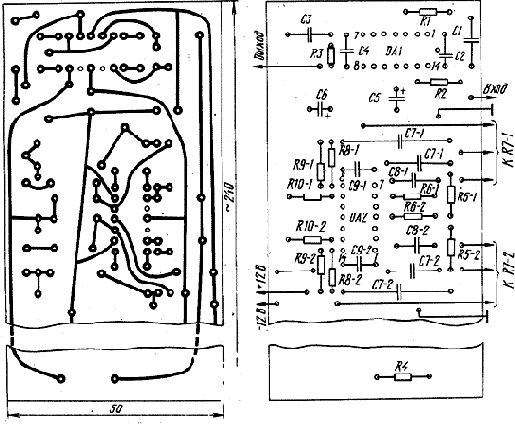 R1
C3
C1
Выход
R3
C4
7
1
DA1
8
14
C2
R2
C6
+
C5
+
Вход
C7-1
R8-1
R9-1
C7-1
C9-1
C8-1
К R7-1
R10-1
7
R6-1
R5-1
R6-2
R10-2
C8-2
R9-2
C9-2
R5-2
R8-2
C7-2
К R7-2
+12В
C7-2
-12В
~240
R4
50